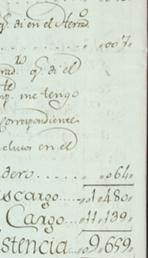 q. di en el Herad.
007
rad. q. di el
q. me tengo
correspondiente
cluso en el
dero 064
scargo 1480
Cargo 11139
stencia 9659